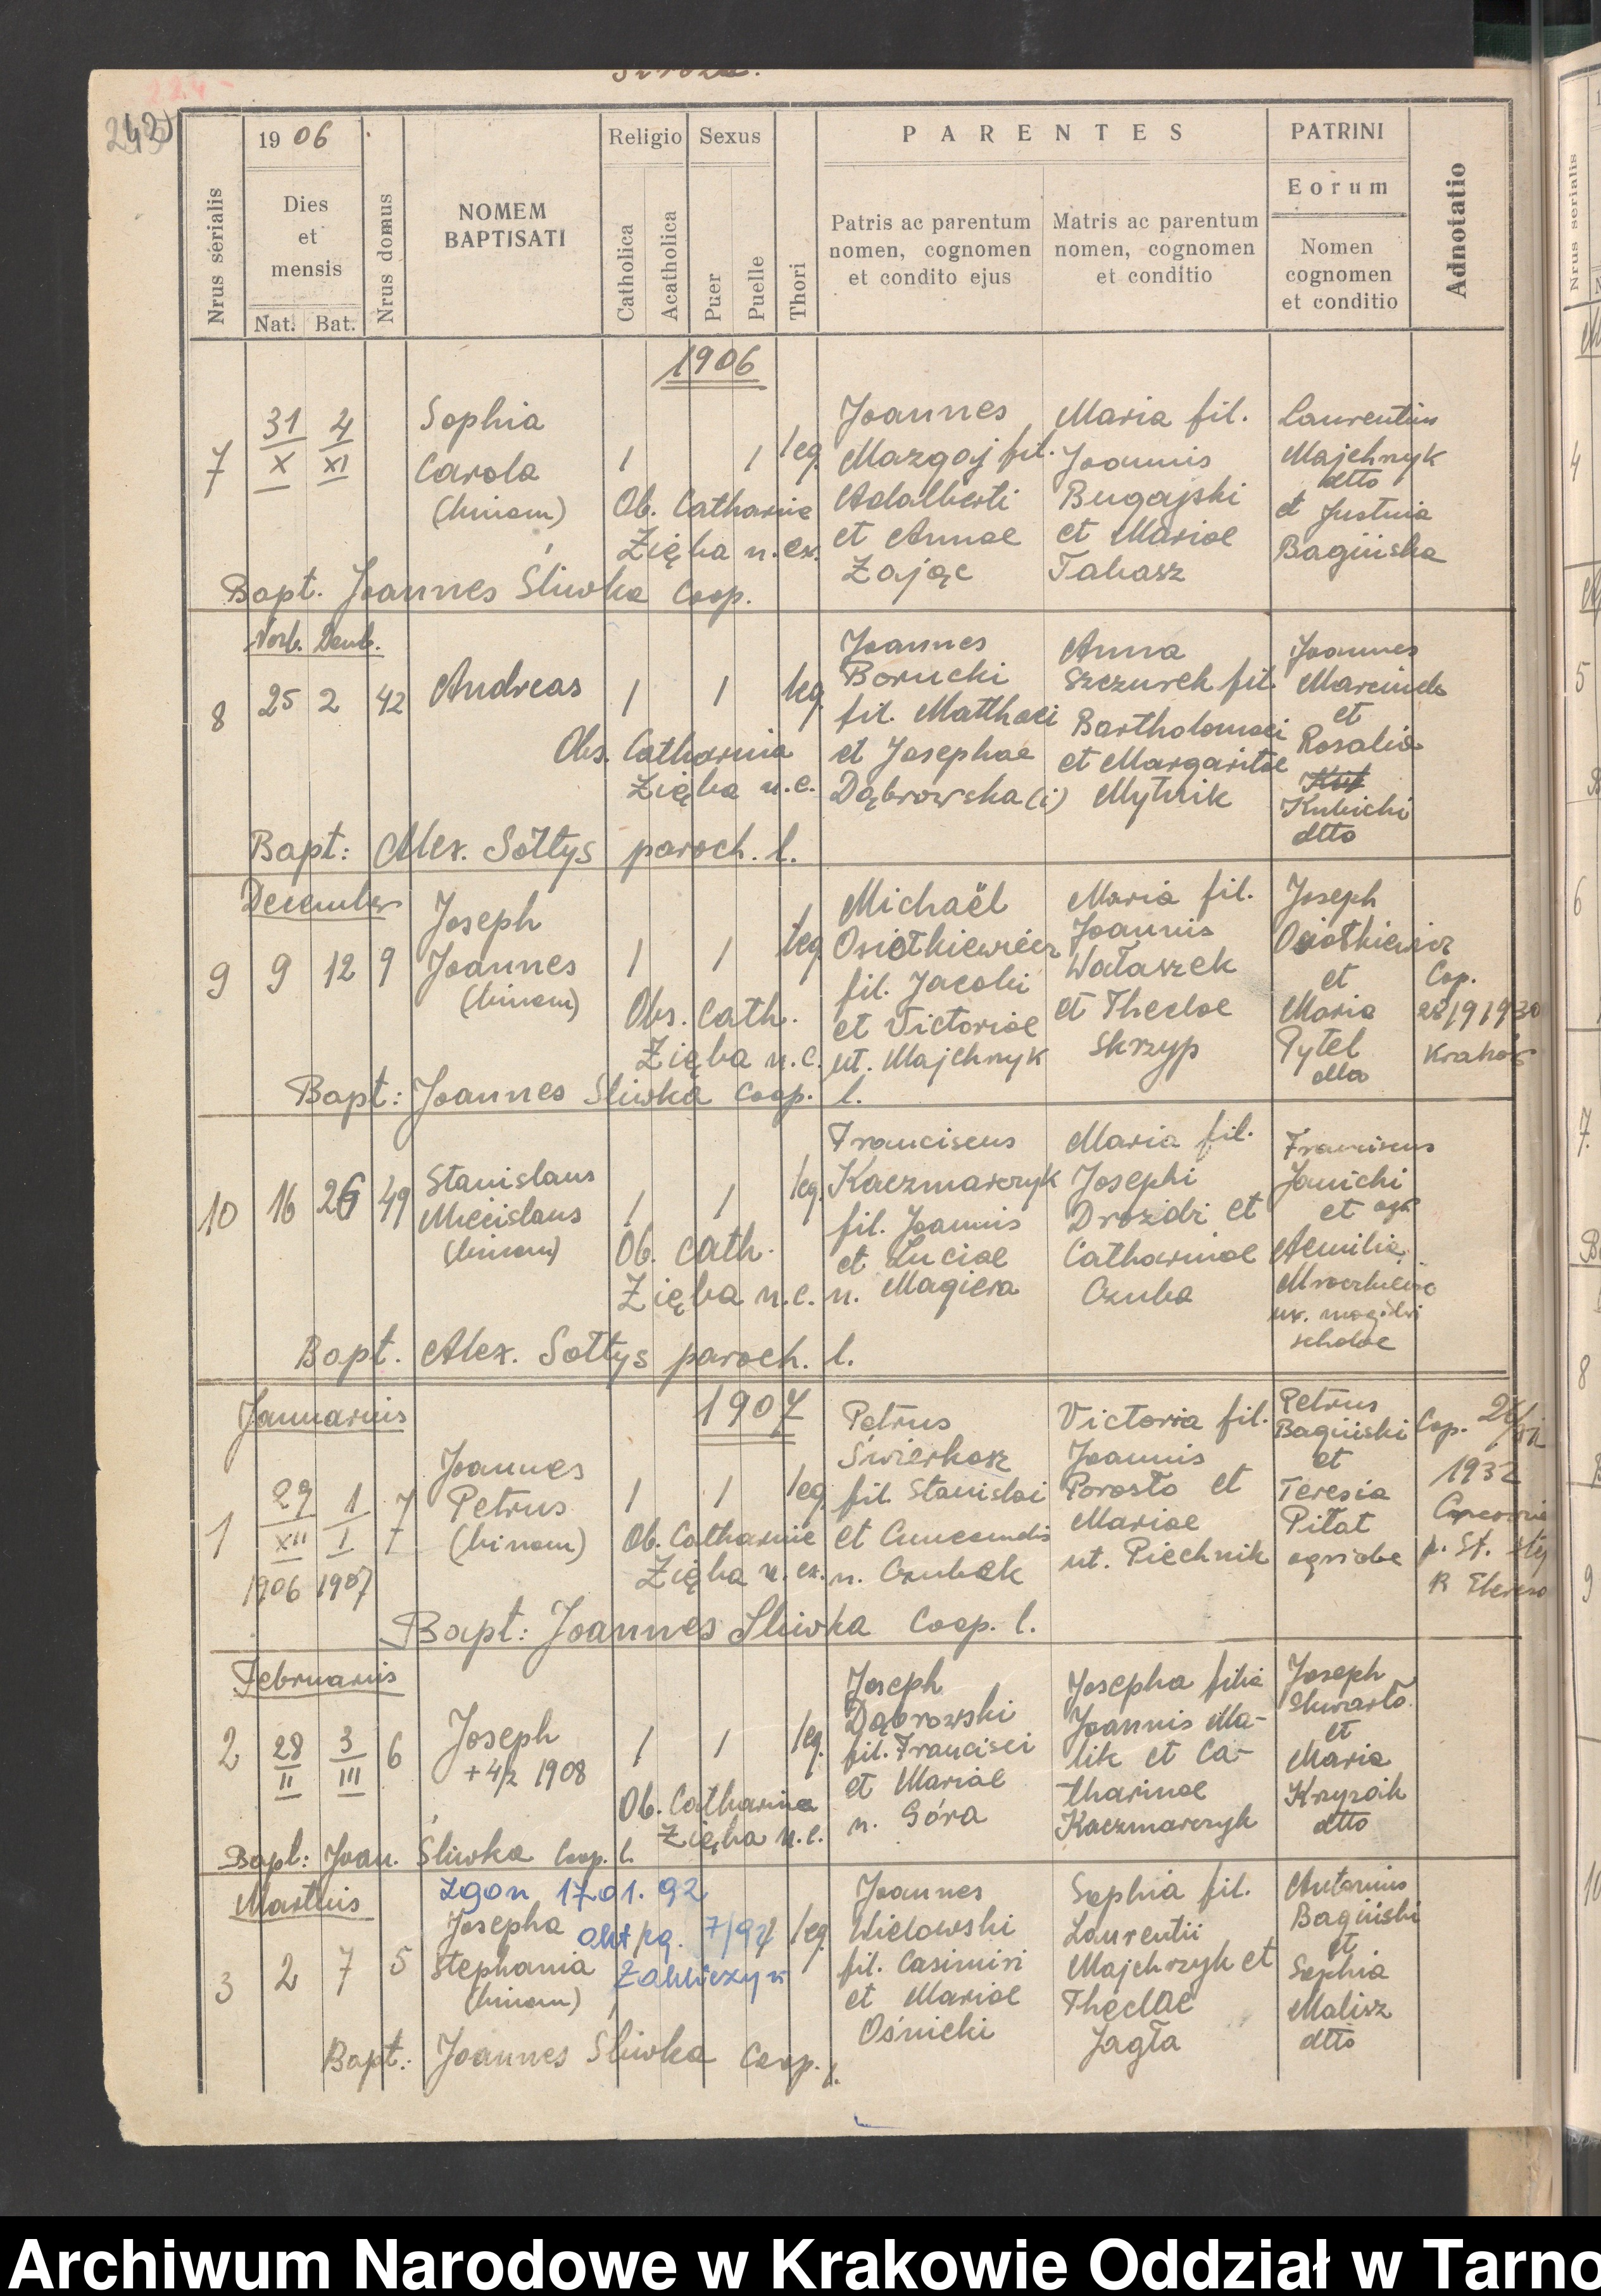 242
Nrus serialis
1906
Dies
et
mensis
Nat. Bat.
Nrus domus
NOMEM
BAPTISATI
Religio
Catholica
Acatholica
Sexus
Puer
Puelle
Thori
PARENTES
Patris ac parentum
nomen, cognomen
et condito ejus
Matris ac parentum
nomen, cognomen
et conditio
PATRINI
Eorum
Nomen
cognomen
et conditio
Adnotatio
1906
7
31 4
X XI
Sophia
Carola
(binom)
1 1 leg.
Ob. Catharine
Zięba n. ex.
Joannes
Mazgaj fil.
Adalberti
et Annae
Zając
Maria fil.
Joannis
Bugajski
et Mariae
Tabasz
Laurentius
Majchrzyk
dtto
et Justina
Bagińska
Bapt. Joannes Śliwka Coop.
Novb. Decemb.
8 25 2 42 Andreas 1 1 leg.
Obs. Catharina
Zięba n.e.
Joannes
Borucki
fil. Matthaei
et Josephae
Dąbrowska (i)
Anna
Szczurek fil.
Bartholomaei
et Margaritae
Mytnik
Joannes
et
Rosalia
Kubicki
dtto
Bapt: Alex. Sołtys paroch. l.
December
9 9 12 9
Joseph
Joannes
(binom)
1 1 leg
Obs. Cath.
Zięba n.e.
Michaël
Osiotkiewicz
fil. Jacobi
et Victoriae
ut. Majchrzyk
Maria fil.
Joannis
Wałaszek
et Theclae
Skrzyp
Joseph
Osiotkiewicz
et
Maria
Pytel
dtto
Cop.
28/9 1930
Kraków
Bapt: Joannes Śliwka Coop. l.
10 16 26 49
Stanislaus
Miecislaus
(binom)
1 1 leg.
Ob. Cath.
Zięba n.e.
Franciscus
Kaczmarczyk
fil. Joannis
et Luciae
n. Magiera
Maria fil.
Josephi
Drożdż et
Catharinae
Czuba
Franciscus
Janicki
et agr.
Aemilia
scholae
Bapt. Alex. Sołtys paroch. l.
Januarius
1907
1
29 1 7
XII I
1906 1907
Joannes
Petrus
(binom)
1 1 leg
Ob. Catharine
Zięba n. ex.
Petrus
Świerkosz
fil. Stanislai
et Cunecundis
n. Czubek
Victoria fil.
Joannis
Porosło et
Mariae
ut. Piechnik
Petrus
Bagiński
et
Teresia
Piłat
agricolae
Cop.
1932
p. St.
Bapt: Joannes Śliwka Coop. l.
Februarius
2
28 3 6
II III
Joseph
+ 4/2 1908
1 1 leg.
Ob. Catharina
Zięba n.e.
Joseph
Dąbrowski
fil. Francisci
et Mariae
n. Góra
Josepha filia
Joannis Ma-
lik et Ca-
tharinae
Kaczmarczyk
Joseph
et
Maria
Krzyżak
dtto
Bapt: Joan. Śliwka Coop. l.
Martius
Zgon 17.01.92
3 2 7 5
Josepha akt pg. 7/92 leg.
Stephania Zakliczyn
(binom)
Joannes
Wielowski
fil. Casimiri
et Mariae
Ośnicki
Sophia fil.
Laurentii
Majchrzyk et
Theclae
Jagła
Antonius
Bagiński
et
Sophia
Malisz
dtto
Bapt: Joannes Śliwka Coop. l.
Archiwum Narodowe w Krakowie Oddział w Tarno